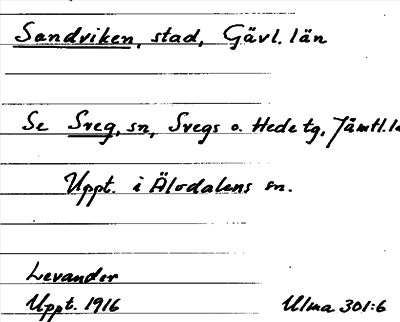 Sandviken, stad, Gävl. län
Se Sveg, sn, Svegs o. Hede tg, Jämtl. l
Uppt. i Älvdalens sn.
Levander
Uppt. 1916 Ulma 301:6